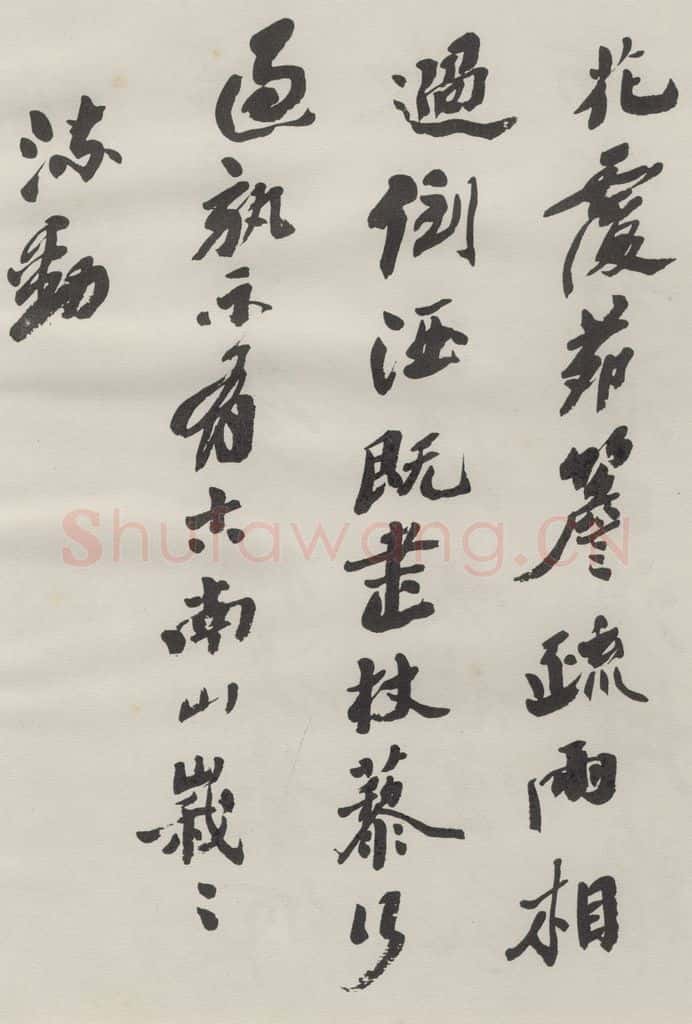 花覆茆簷疏雨相
過倒酒既盡杖藜行
過孰不有古南山峩〻
流動
Shufawang.CN